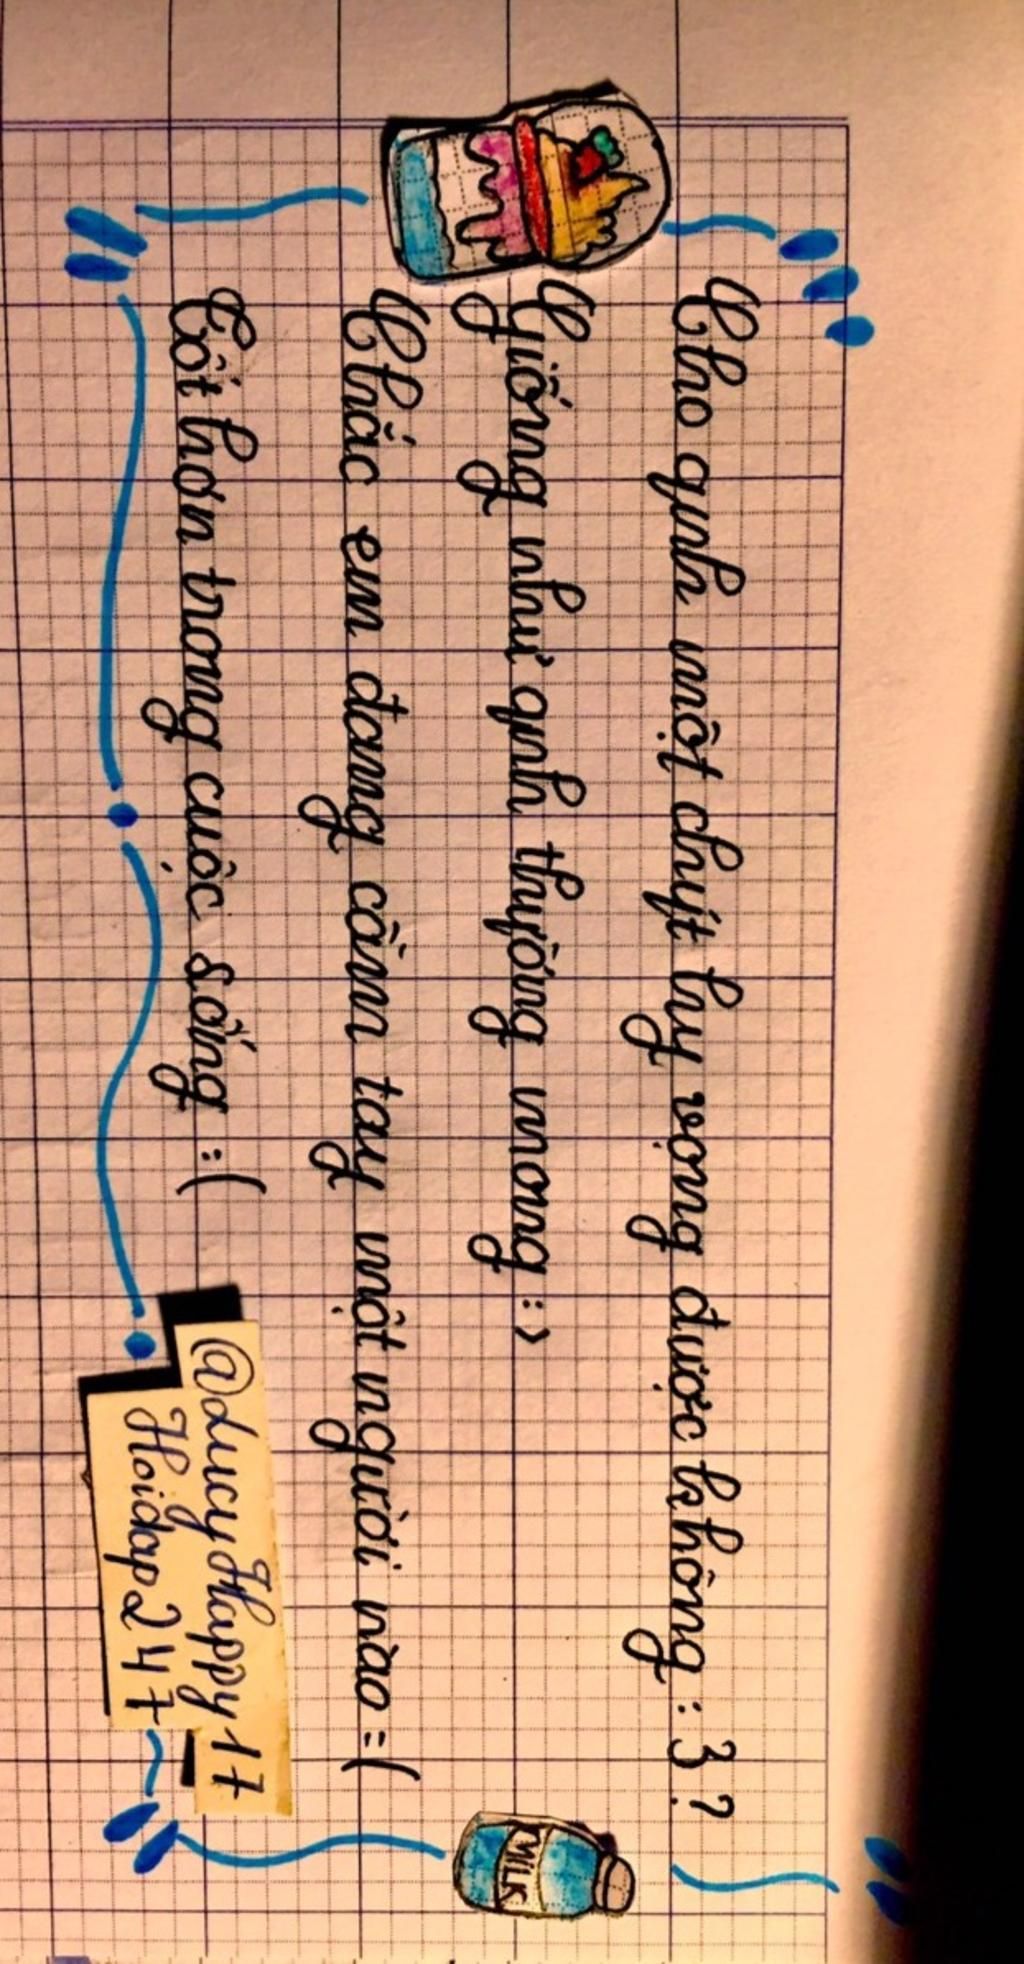 Cho qnh một chýt hy vọng được không : 3 ?
Giống như qnh thường mong :>
Chắc em đang cầm tay một người nào =(
Tốt hơn trong cuộc sống :(
@LucyHappy17
Hoidap247
MILK